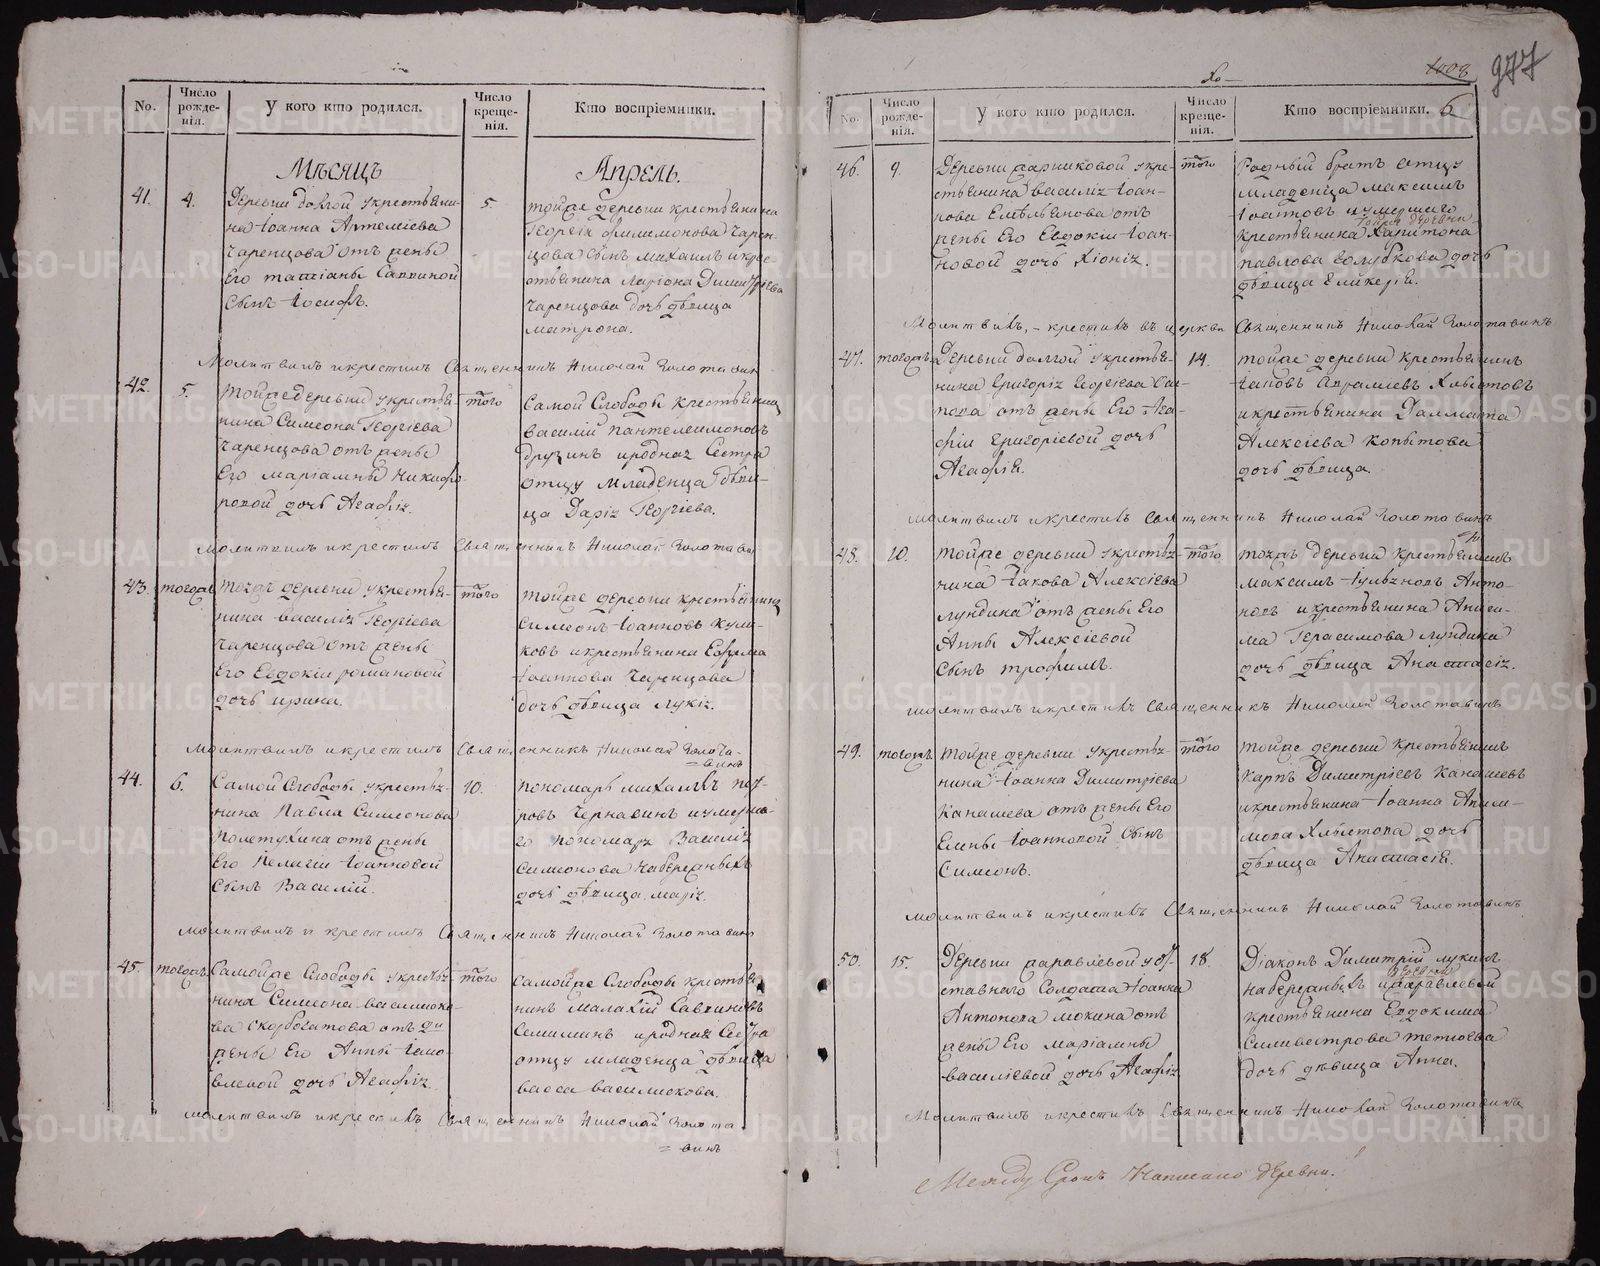 No.
Число рожде-нія.
У кого кто родился.
Число креще-нія.
Кто воспріемники.
Мѣсяцъ
Апрель.
41.
4.
Деревни долгой у крестьяни-
на Іоанна Артемieва
Чаренцова отъ жены
Его татіаны Саввиной
Сынъ Іосифъ.
5.
тойже деревни крестьянина
Георгія филимонова Чарен-
цова Сынъ михаилъ и крес-
тьянина Ларіона Димитріева
Чаренцова дочь дѣвица
матрона.
Молитвилъ и крестилъ Священникъ Николай Золотавин
42.
5.
тойже деревни у крестья-
нина Симеона Георгіева
Чаренцова отъ жены
Его маріамны Никифо-
ровой дочь Агафія.
того
Самой Слободы крестьянинъ
василій пантелеимоновъ
друзинъ и родная Сестра
отцу младенца дѣви-
ца Дарія Георгіева.
молитвилъ и крестилъ Священникъ Николай Золотавин
43.
тогожъ
тояжъ деревни у крестья-
нина василія Георгіева
Чаренцова отъ жены
Его Евдокіи романовой
дочь ирина.
того
тойже деревни крестьянинъ
Симеонъ Іоанновъ кули-
ковъ и крестьянина Ефима
Іоаннова Чаренцова
дочь дѣвица лукія.
молитвилъ и крестилъ Священникъ Николай Золота-
=винъ
44.
6.
Самой Слободы у крестья-
нина Павла Симеонова
Полетухина отъ жены
Его Пелагіи Іоанновой
Сынъ Василій.
10.
пономарь михаилъ пет-
ровъ Чернавинъ и умерша-
го пономаря Василія
Симеонова Набережныхъ
дочь дѣвица марія.
молитвилъ и крестилъ Священникъ Николай Золотавинъ
45.
тогожъ
Самойже Слободы у крестья
нина Симеона василиско-
ва Скорбогатова отъ
жены Его Анны Іако-
влевой дочь Агафія.
того
Самойже Слободы крестья
нинъ малахій Саввиновъ
Семилинъ и родная Сестра
отцу младенца дѣвица
васса василискова.
молитвилъ и крестилъ Священникъ Николай Золота
=винъ
1008
977
6
No.
Число рожде-нія.
У кого кто родился.
Число креще-нія.
Кто воспріемники.
46.
9.
Деревни парниковой у кре-
стьянина василія Іоан-
нова Емельянова отъ
жены Его Евдокіи Іоан-
новой дочь Хіонія.
того
родный братъ отцу
младенца максимъ
Іоанновъ и умершаго
тойже деревни
крестьянина Харитона
павлова Голубкова дочь
дѣвица Гликерія.
Молитвилъ, - крестилъ въ церкви Священникъ Николай Золотавинъ
47.
тогожъ
Деревни долгой у крестья-
нина Григорія Георгіева Са-
пова отъ жены Его Ага-
фіи Григоріевой дочь
Агафія.
14.
тойже деревни крестьянинъ
Іаковъ Аврамiевъ Хлыстовъ
и крестьянина Далмата
Алексіева Копытова
дочь дѣвица
молитвилъ и крестилъ Священникъ Николай Золотавинъ
48.
10.
тойже деревни у крестья-
нина Іакова Алексіева
лундина отъ жены Его
Анны Алексіевой
Сынъ трофимъ.
того
тояжъ деревни крестьянинъ
максимъ Іуліановъ Анто-
новъ и крестьянина Аниси-
ма Герасимова лундина
дочь дѣвица Анастасія.
молитвилъ и крестилъ Священникъ Николай Золотавинъ
49.
тогожъ
тойже деревни у крестья-
нина Іоанна Димитріева
Канашева отъ жены Его
Елены Іоанновой Сынъ
Симеонъ.
того
тойже деревни крестьянинъ
Карпъ Димитріевъ Канашевъ
и крестьянина Іоанна Аким-
мова Хлыстова дочь
дѣвица Анастасія.
молитвилъ и крестилъ Священникъ Николай Золотавинъ
50.
15.
Деревни журавлевой у от-
ставнаго Солдата Іоанна
Антонова мокина отъ
жены Его маріамны
василіевой дочь Агафія
18.
Діаконъ Димитрій лукинъ
деревни
набережныхъ и журавлевой
крестьянина Евдокима
Силивестрова тетюева
дочь дѣвица Анна.
Молитвилъ и крестилъ Священникъ Николай Золотавинъ
Между Строкъ Написано деревни.